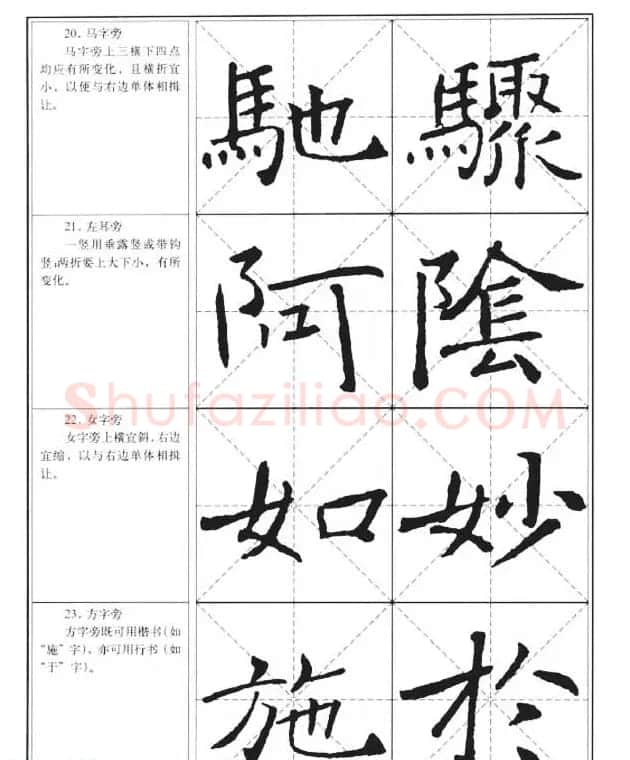 20. 马字旁
马字旁上三横下四点
均应有所变化，且横折宜
小，以便与右边单体相揖
让。
馳 驟
21. 左耳旁
一竖用垂露竖或带钩
竖;两折要上大下小，有所
变化。
阿 陰
Shufaziliao.COM
22. 女字旁
女字旁上横宜斜，右边
宜缩，以与右边单体相揖
让。
如 妙
23. 方字旁
方字旁既可用楷书(如
“施”字)，亦可用行书(如
“于”字)。
施 於